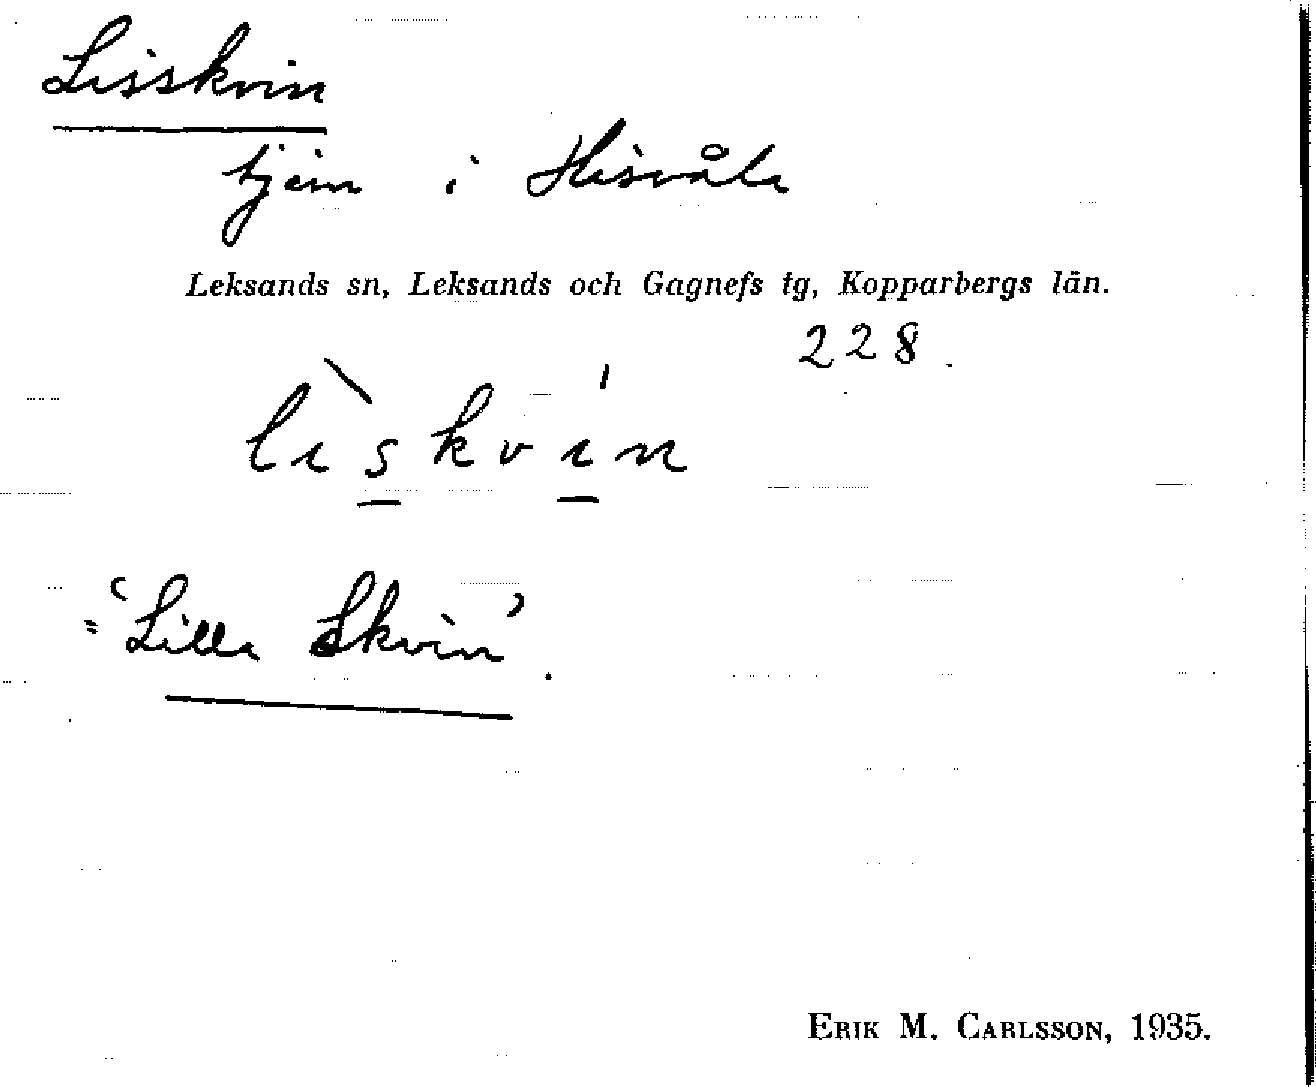 Lisskvin
tjärn i Hisvåla
Leksands sn, Leksands och Gagnefs tg, Kopparbergs län.
228.
lìskvín
= 'Lilla Skvin'.
ERIK M. CARLSSON, 1935.